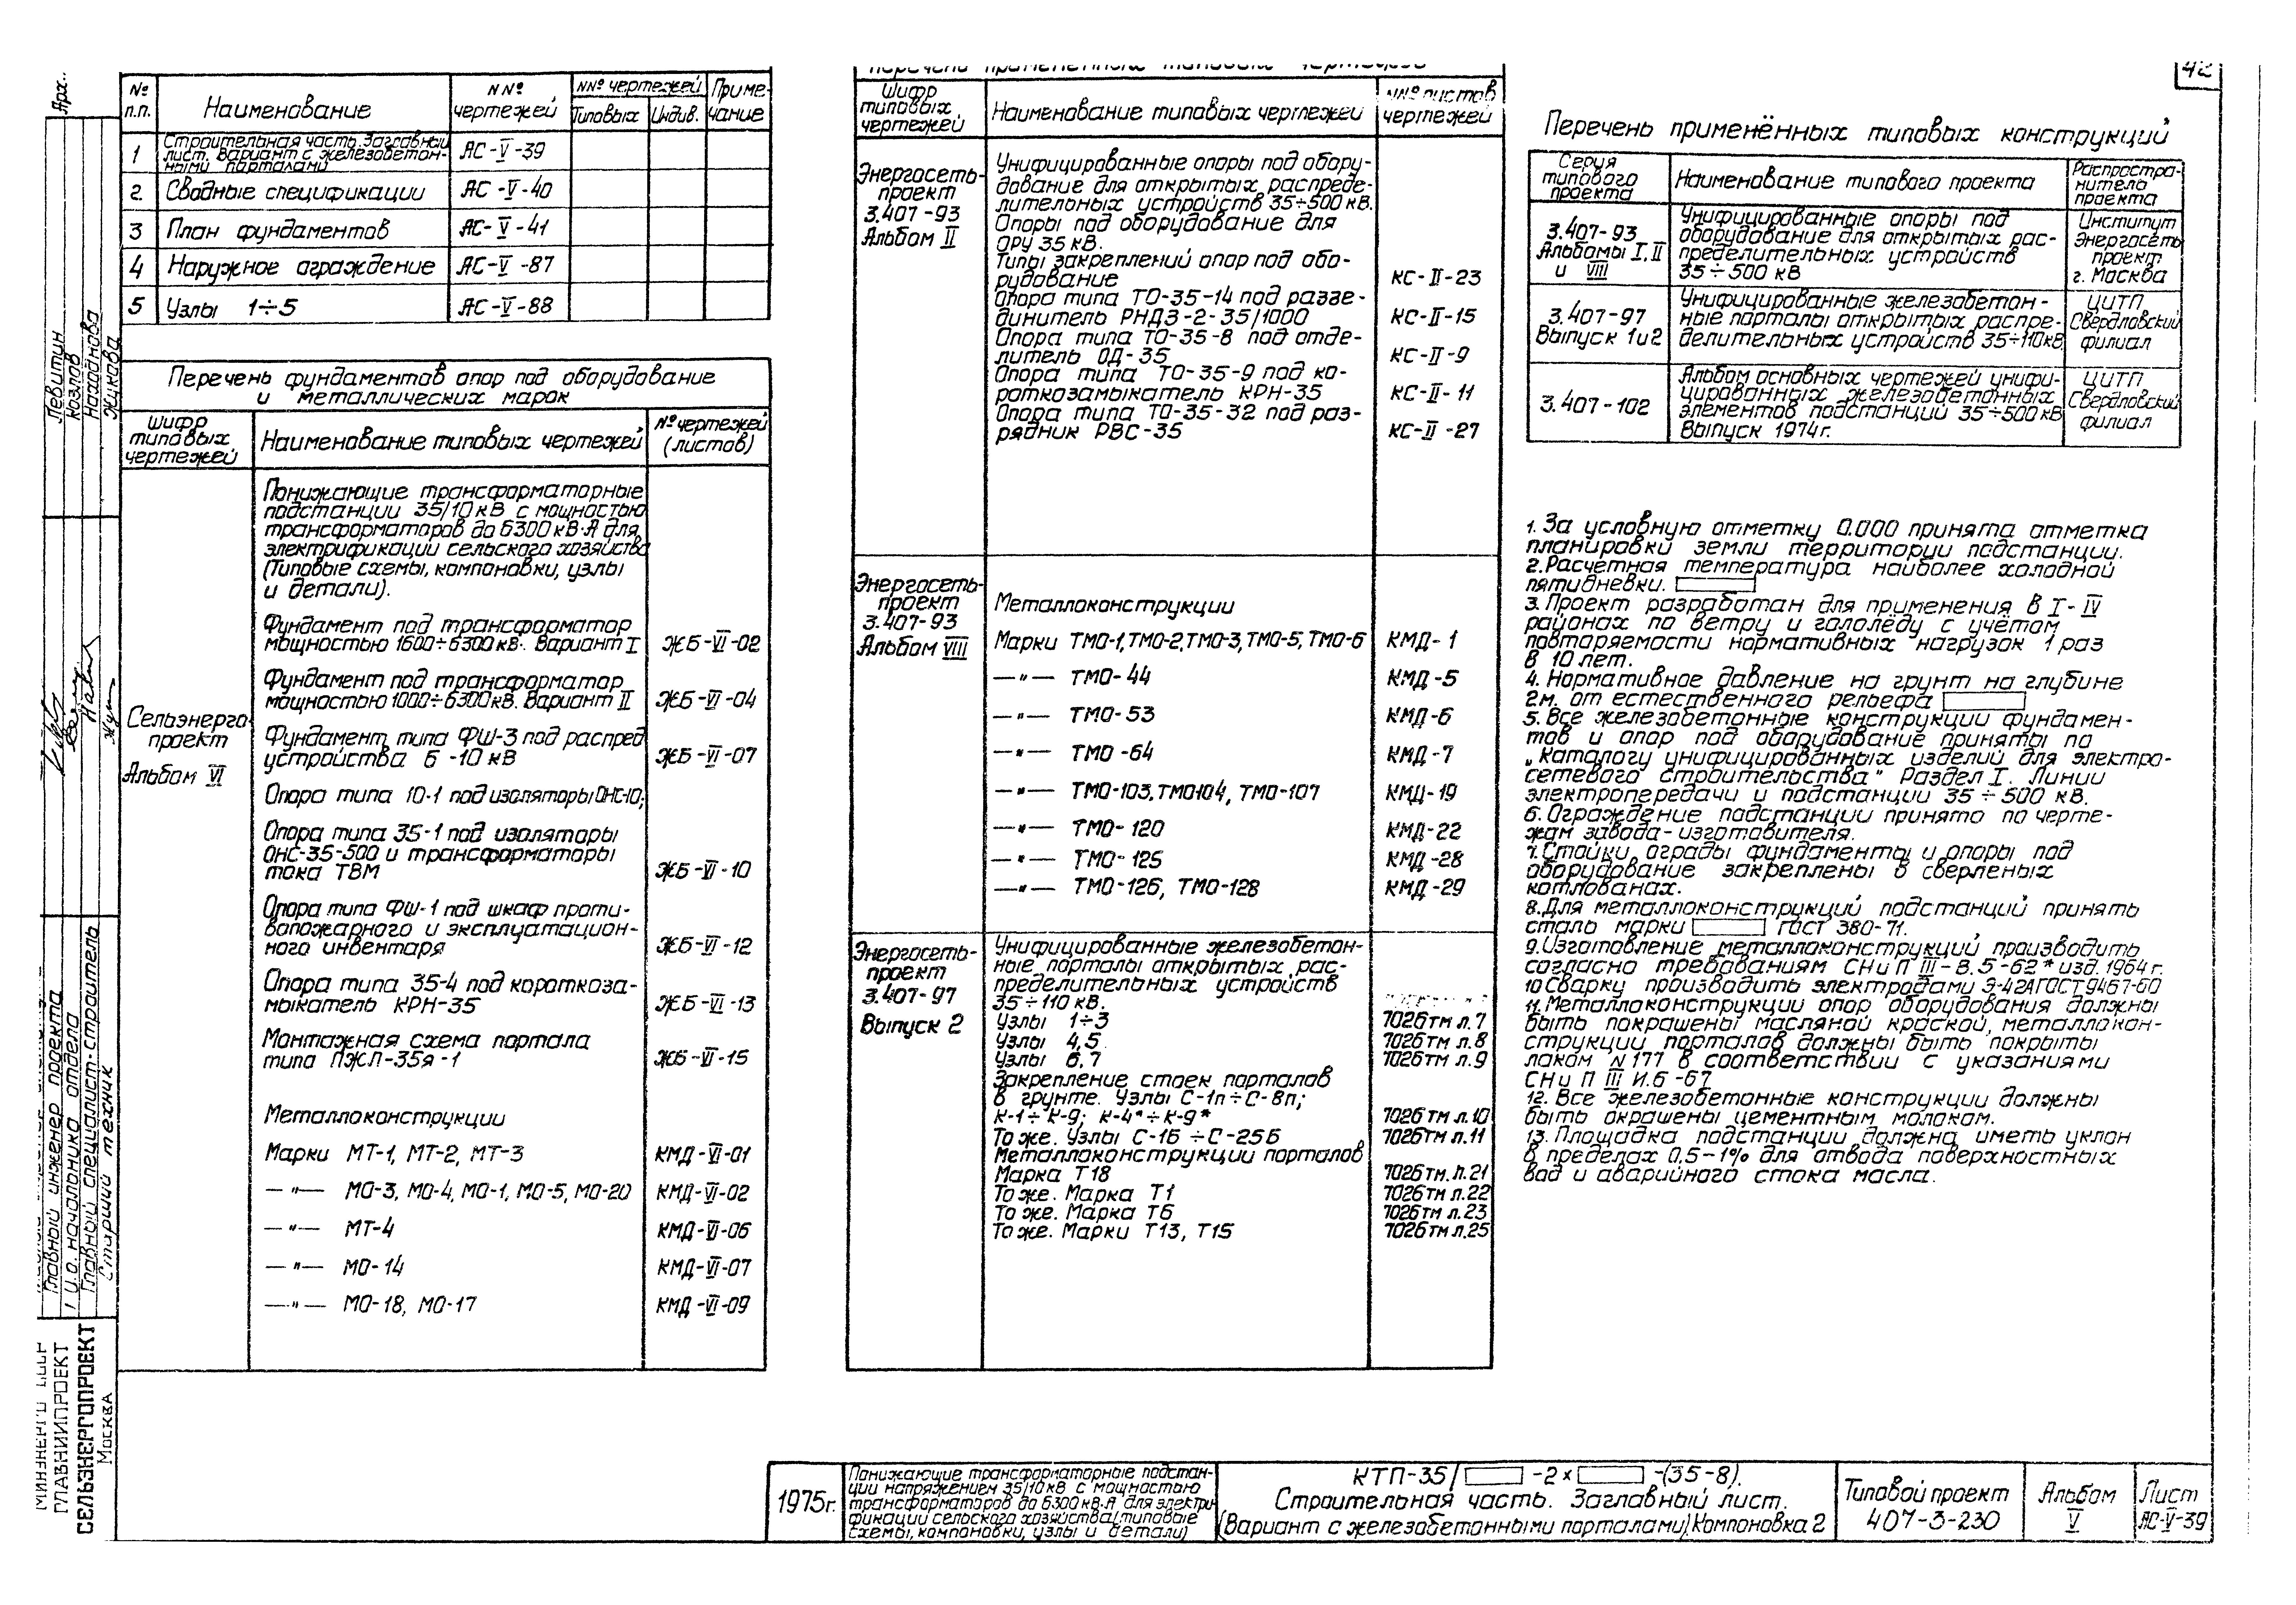 42
№ п.п. Наименование NNº чертежей NNº чертежей Типовых Индив. Примечание
1 Строительная часть. Заглавный
лист. Вариант с железобетон-
ными порталами АС-V-39
2. Сводные спецификации АС-V-40
3 План фундаментов АС-V-41
4 Наружное ограждение АС-V-87
5 Узлы 1÷5 АС-V-88
Перечень фундаментов опор под оборудование
и металлических марок
Шифр типовых чертежей Наименование типовых чертежей № чертежей (листов)
Сельэнерго-
проект
Альбом VI
Понижающие трансформаторные
подстанции 35/10кВ с мощностью
трансформаторов до 6300 кВ·А для
электрификации сельского хозяйства
(Типовые схемы, компоновки, узлы
и детали).
Фундамент под трансформатор
мощностью 1600÷6300кВ. Вариант I ЖБ-VI-02
Фундамент под трансформатор
мощностью 1000÷6300кВ. Вариант II ЖБ-VI-04
Фундамент типа ФШ-3 под распред
устройства 6-10 кВ ЖБ-VI-07
Опора типа 10-1 под изоляторы ОНС-10;
Опора типа 35-1 под изоляторы
ОНС-35-500 и трансформаторы
тока ТВМ ЖБ-VI-10
Опора типа ФШ-1 под шкаф проти-
вопожарного и эксплуатацион-
ного инвентаря ЖБ-VI-12
Опора типа 35-4 под короткоза-
мыкатель КРН-35 ЖБ-VI-13
Монтажная схема портала
типа ПЖСП-35Я-1 ЖБ-VI-15
Металлоконструкции
Марки МТ-1, МТ-2, МТ-3 КМД-VI-01
—"— МО-3, МО-4, МО-1, МО-5, МО-20 КМД-VI-02
—"— МТ-4 КМД-VI-06
—"— МО-14 КМД-VI-07
—"— МО-18, МО-17 КМД-VI-09
Перечень применённых типовых чертежей
Шифр типовых чертежей Наименование типовых чертежей NNº листов чертежей
Энергосеть-
проект
3.407-93
Альбом II
Унифицированные опоры под обору-
дование для открытых распреде-
лительных устройств 35÷500 кВ.
Опоры под оборудование для
ОРУ 35 кВ.
Типы закреплений опор под обо-
рудование КС-II-23
Опора типа ТО-35-14 под разъе-
динитель РНДЗ-2-35/1000 КС-II-15
Опора типа ТО-35-8 под отде-
литель ОД-35 КС-II-9
Опора типа ТО-35-9 под ко-
роткозамыкатель КРН-35 КС-II-11
Опора типа ТО-35-32 под раз-
рядник РВС-35 КС-II-27
Энергосеть-
проект
3.407-93
Альбом VIII
Металлоконструкции
Марки ТМО-1, ТМО-2, ТМО-3, ТМО-5, ТМО-6 КМД-1
—"— ТМО-44 КМД-5
—"— ТМО-53 КМД-6
—"— ТМО-64 КМД-7
—"— ТМО-103, ТМО104, ТМО-107 КМД-19
—"— ТМО-120 КМД-22
—"— ТМО-125 КМД-28
—"— ТМО-126, ТМО-128 КМД-29
Энергосеть-
проект
3.407-97
Выпуск 2
Унифицированные железобетон-
ные порталы открытых рас-
пределительных устройств
35÷110 кВ.
Узлы 1÷3 7026тм л.7
Узлы 4,5 7026тм л.8
Узлы 6,7 7026тм л.9
Закрепление стоек порталов
в грунте. Узлы С-1п÷С-8п;
К-1÷К-9; К-4*÷К-9* 7026тм л.10
То же. Узлы С-1Б÷С-25Б 7026тм л.11
Металлоконструкции порталов
Марка Т18 7026тм.л.21
То же. Марка Т1 7026тм л.22
То же. Марка Т6 7026тм л.23
То же. Марки Т13, Т15 7026тм л.25
Перечень применённых типовых конструкций
Серия типового проекта Наименование типового проекта Распростра-нителя проекта
3.407-93
Альбомы I, II
и VIII
Унифицированные опоры под
оборудование для открытых рас-
пределительных устройств
35÷500 кВ
Институт
Энергосеть
проект
г. Москва
3.407-97
Выпуск 1и2
Унифицированные железобетон-
ные порталы открытых распре-
делительных устройств 35÷110кВ
ЦИТП
Свердловский
филиал
3.407-102
Альбом основных чертежей унифи-
цированных железобетонных
элементов подстанций 35÷500кВ
Выпуск 1974г.
ЦИТП
Свердловский
филиал
1. За условную отметку 0.000 принята отметка
планировки земли территории подстанции.
2. Расчетная температура наиболее холодной
пятидневки.
3. Проект разработан для применения в I-IV
районах по ветру и гололёду с учётом
повторяемости нормативных нагрузок 1 раз
в 10 лет.
4. Нормативное давление на грунт на глубине
2м. от естественного рельефа
5. Все железобетонные конструкции фундамен-
тов и опор под оборудование приняты по
„Каталогу унифицированных изделий для электро-
сетевого строительства" Раздел I. Линии
электропередачи и подстанции 35÷500 кВ.
6. Ограждение подстанции принято по черте-
жам завода-изготовителя.
7. Стойки ограды фундаменты и опоры под
оборудование закреплены в сверленых
котлованах.
8. Для металлоконструкций подстанций принять
сталь марки ГОСТ 380-71.
9. Изготовление металлоконструкций производить
согласно требованиям СНиП III-В.5-62* изд. 1964г.
10 Сварку производить электродами Э-42А ГОСТ 9467-60
11. Металлоконструкции опор оборудования должны
быть покрашены масляной краской, металлокон-
струкции порталов должны быть покрыты
лаком N 177 в соответствии с указаниями
СНиП III И.6-67
12. Все железобетонные конструкции должны
быть окрашены цементным молоком.
13. Площадка подстанции должна иметь уклон
в пределах 0,5-1% для отвода поверхностных
вод и аварийного стока масла.
Арх..
Левитин
Козлов
Находнова
Жукова
Главный инженер проекта
И.о. начальника отдела
Главный специалист-строитель
Старший техник
МИНЭНЕРГО СССР
ГЛАВНИИПРОЕКТ
СЕЛЬЭНЕРГОПРОЕКТ
Москва
1975г.
Понижающие трансформаторные подстан-
ции напряжением 35/10кВ с мощностью
трансформаторов до 6300 кВ·А для электри
фикации сельского хозяйства (типовые
схемы, компоновки, узлы и детали)
КТП-35/ -2× -(35-8).
Строительная часть. Заглавный лист.
(Вариант с железобетонными порталами). Компоновка 2
Типовой проект
407-3-230
Альбом
V
Лист
АС-V-39